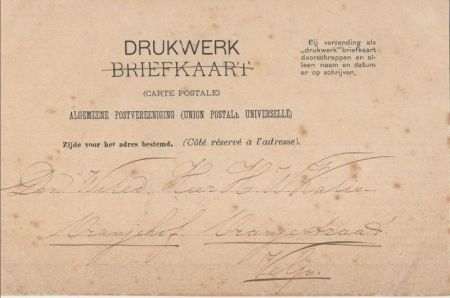 DRUKWERK
BRIEFKAART
(CARTE POSTALE)
ALGEMEENE POSTVEREENIGING (UNION POSTALE UNIVERSELLE)
Zijde voor het adres bestemd. (Côté réservé à l'adresse).
Bij verzending als
„drukwerk" briefkaart
doorschrappen en al-
leen naam en datum
er op schrijven.
Den Weled. Heer H. W.
Oranjehof. Oranjestraat
Velp.